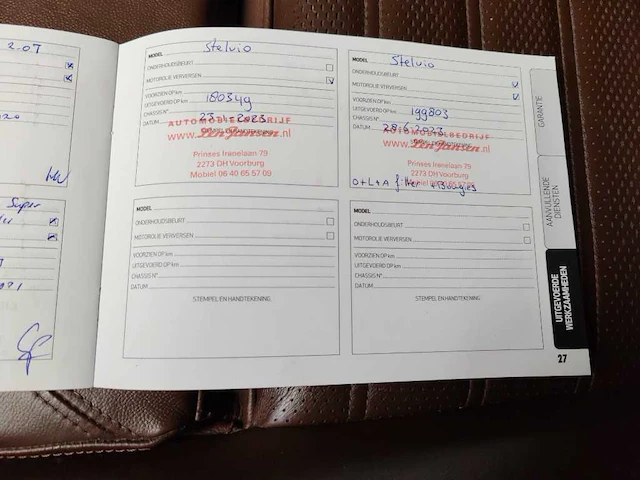 2.07
MODEL Stelvio
ONDERHOUDSBEURT
MOTOROLIE VERVERSEN
VOORZIEN OP km
UITGEVOERD OP km 180349
CHASSIS N°
DATUM
AUTOMOBIELBEDRIJF
www. .nl
Prinses Irenelaan 79
2273 DH Voorburg
Mobiel 06 40 65 57 09
MODEL Stelvio
ONDERHOUDSBEURT
MOTOROLIE VERVERSEN
VOORZIEN OP km
UITGEVOERD OP km 199803
CHASSIS N°
DATUM 28.6.2023
AUTOMOBIELBEDRIJF
www. Jansen.nl
Prinses Irenelaan 79
2273 DH Voorburg
Mobiel 06 40 65 57 09
O+L+A filter + Bougies
Super
MODEL
ONDERHOUDSBEURT
MOTOROLIE VERVERSEN
VOORZIEN OP km
UITGEVOERD OP km
CHASSIS N°
DATUM
STEMPEL EN HANDTEKENING
MODEL
ONDERHOUDSBEURT
MOTOROLIE VERVERSEN
VOORZIEN OP km
UITGEVOERD OP km
CHASSIS N°
DATUM
STEMPEL EN HANDTEKENING
GARANTIE
AANVULLENDE
DIENSTEN
UITGEVOERDE
WERKZAAMHEDEN
27